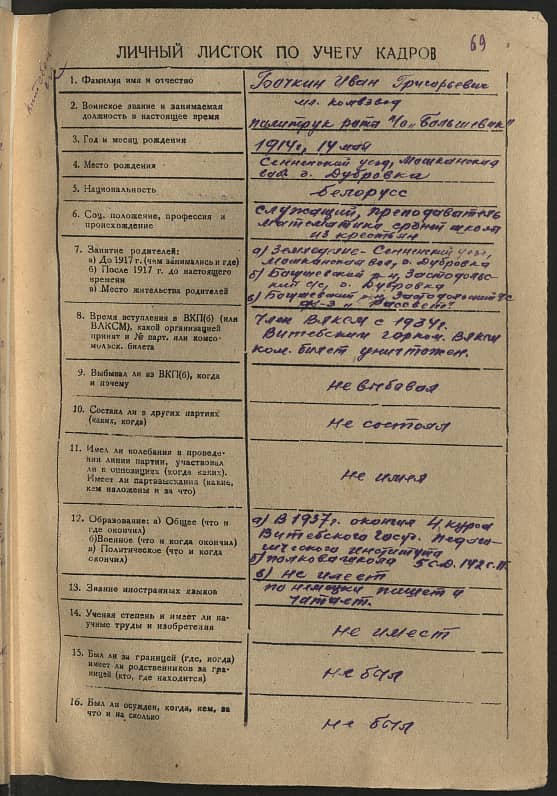 69
ЛИЧНЫЙ ЛИСТОК ПО УЧЕТУ КАДРОВ
1. Фамилия имя и отчество
Бочкин Иван Григорьевич
2. Воинское звание и занимаемая
должность в настоящее время
мл. комвзвод
политрук рота п/о "Большевик"
3. Год и месяц рождения
1914г, 14 май
4. Место рождения
Сенненский уезд, Мошканская
д. Дубровка
5. Национальность
белорусс
6. Соц. положение, профессия и
происхождение
служащий, преподаватель
математика, средней школы
из крестьян
7. Занятие родителей:
а) До 1917 г. (чем занимались и где)
б) После 1917 г. до настоящего
времени
в) Место жительства родителей
а) Земледелие - Сенненский уезд,
Мошканская вол, д. Дубровка
б) Богушевский р-н, Застодоль-
ский с/с, д. Дубровка
в) Богушевский р-н, Застодольский с/с
к-з "Рассвет"
8. Время вступления в ВКП(б) (или
ВЛКСМ), какой организацией
принят и № парт. или комсо-
мольск. билета
Член ВЛКСМ с 1934г.
Витебским горком. ВЛКСМ
ком. билет уничтожен.
9. Выбывал ли из ВКП(б), когда
и почему
не выбавал
10. Состоял ли в других партиях
(каких, когда)
не состоял
11. Имел ли колебания в проведе-
нии линии партии, участвовал
ли в оппозициях (когда каких).
Имеет ли партвзыскания (какие,
кем наложены и за что)
не имел
12. Образование: а) Общее (что и
где окончил)
б) Военное (что и когда окончил)
в) Политическое (что и когда
окончил)
а) В 1937г. окончил 4 курса
Витебского госуд. педаго-
гического института
б) полковая школа 5 с.д. 142 с.п.
в) не имеет
13. Знание иностранных языков
по немецки пишет и
читает.
14. Ученая степень и имеет ли на-
учные труды и изобретения
не имеет
15. Был ли за границей (где, когда)
имеет ли родственников за гра-
ницей (кто, где находится)
не был
16. Был ли осужден, когда, кем, за
что и на сколько
не был